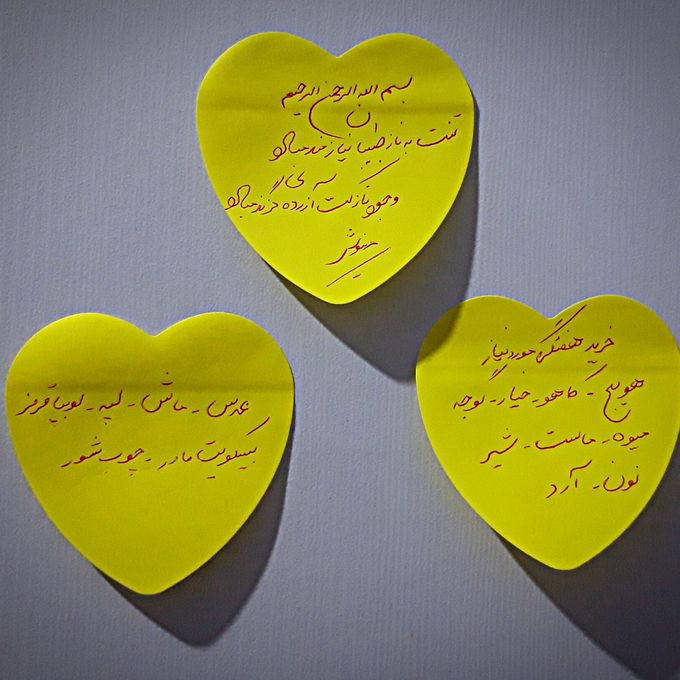 بسم الله الرحمن الرحیم
تنت به ناز طبیبان نیازمند مباد
وجود نازکت آزرده گزند مباد
خرید هفتگی مورد نیاز
هویج - کاهو - خیار - گوجه
میوه - ماست - شیر
نون - آرد
عدس - ماش - لپه - لوبیا قرمز
بیسکویت مادر - چوب شور